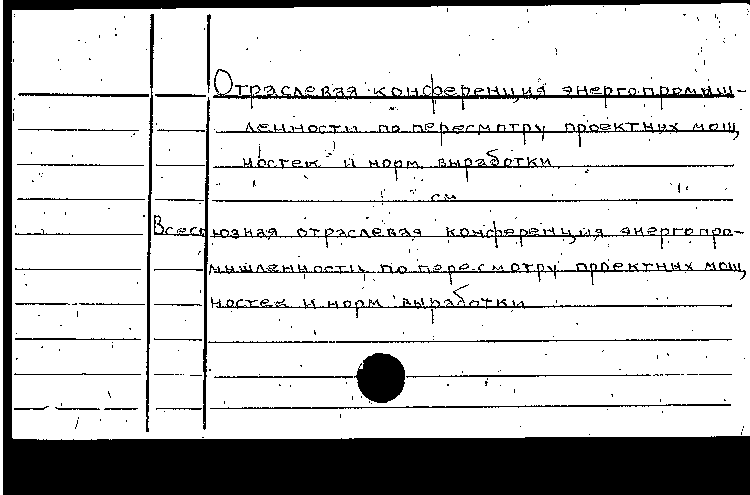 Отраслевая конференция энергопромыш-
ленности по пересмотру проектных мощ
ностей и норм выработки
см
Всесоюзная отраслевая конференция энергопро-
мышленности по пересмотру проектных мощ
ностей и норм выработки